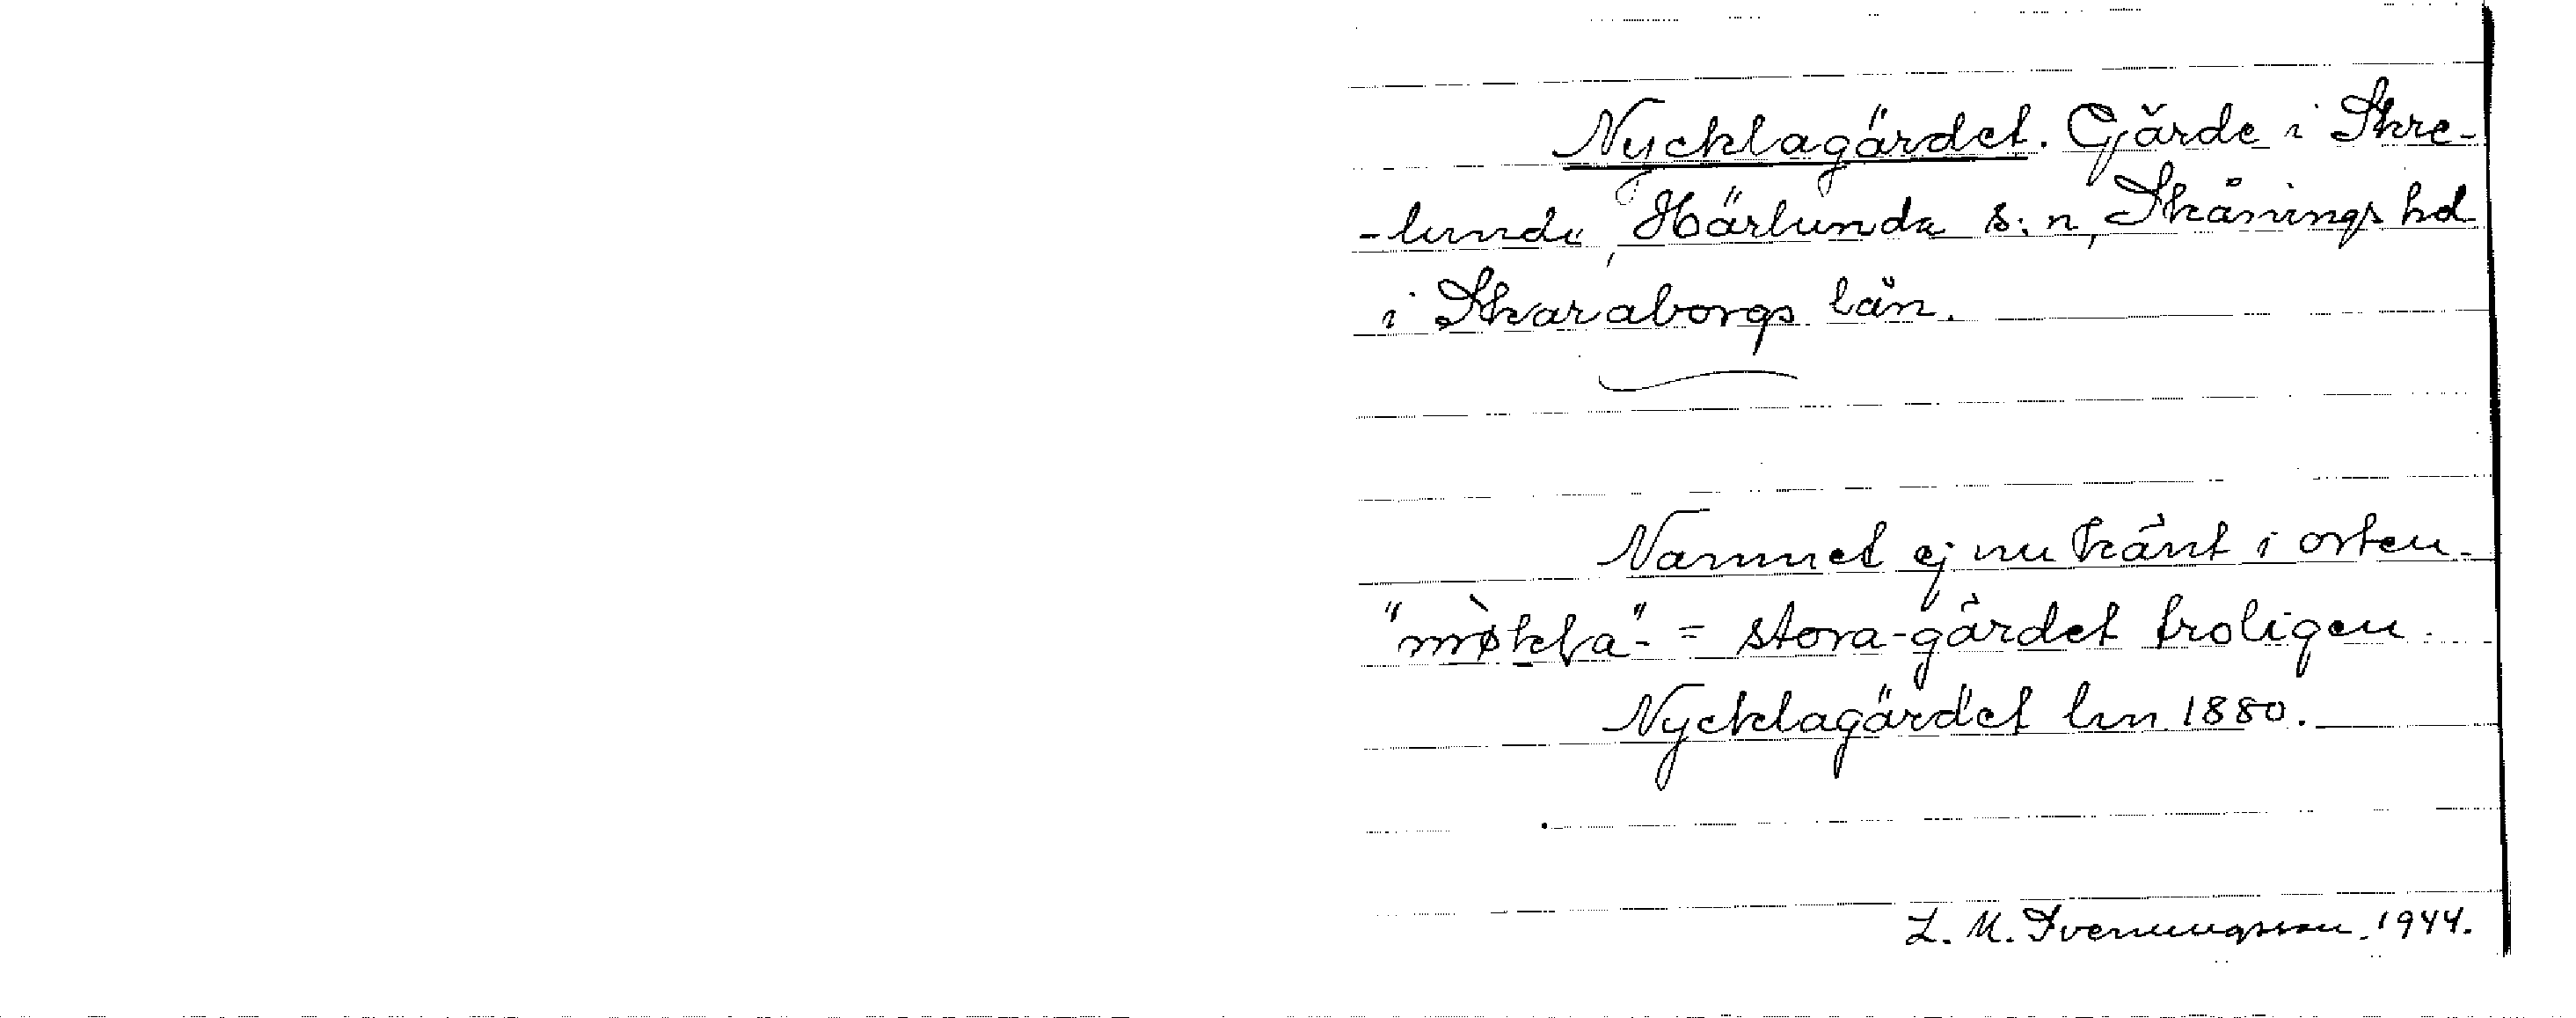 Nycklagärdet. Gärde i Skre-
-lunda, Härlunda s:n, Skånings hd
i Skaraborgs län.
Namnet ej nu känt i orten.
"møkla"- = stora-gärdet troligen.
Nycklagärdet lm 1880.
L. M. Svenungsson 1944.